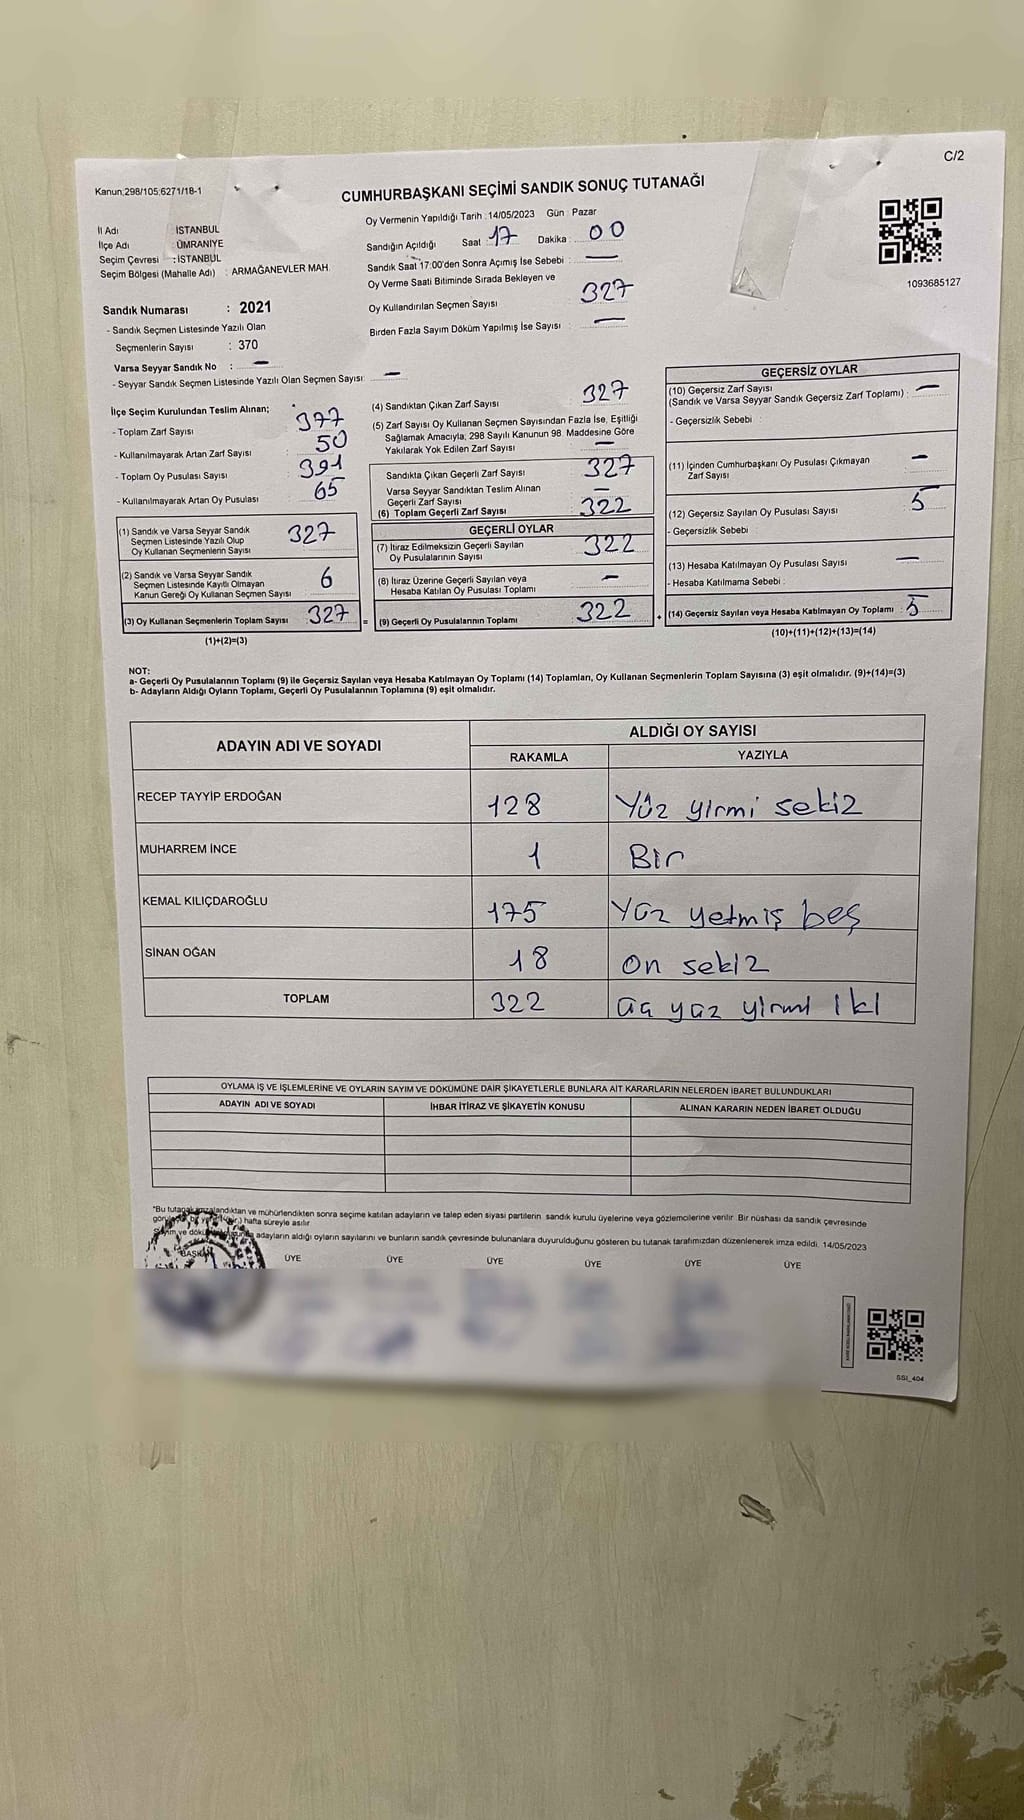 C/2
Kanun;298/105;6271/18-1
CUMHURBAŞKANI SEÇİMİ SANDIK SONUÇ TUTANAĞI
İl Adı : İSTANBUL
İlçe Adı : ÜMRANİYE
Seçim Çevresi : İSTANBUL
Seçim Bölgesi (Mahalle Adı) : ARMAĞANEVLER MAH.
Sandık Numarası : 2021
- Sandık Seçmen Listesinde Yazılı Olan
Seçmenlerin Sayısı : 370
Varsa Seyyar Sandık No : —
- Seyyar Sandık Seçmen Listesinde Yazılı Olan Seçmen Sayısı: —
Oy Vermenin Yapıldığı Tarih : 14/05/2023 Gün : Pazar
Sandığın Açıldığı Saat : 17 Dakika : 00
Sandık Saat 17:00'den Sonra Açımış İse Sebebi : —
Oy Verme Saati Bitiminde Sırada Bekleyen ve
Oy Kullandırılan Seçmen Sayısı 327
Birden Fazla Sayım Döküm Yapılmış İse Sayısı : —
1093685127
İlçe Seçim Kurulundan Teslim Alınan;
- Toplam Zarf Sayısı : 377
- Kullanılmayarak Artan Zarf Sayısı : 50
- Toplam Oy Pusulası Sayısı : 391
- Kullanılmayarak Artan Oy Pusulası : 65
(1) Sandık ve Varsa Seyyar Sandık
Seçmen Listesinde Yazılı Olup
Oy Kullanan Seçmenlerin Sayısı 327
(2) Sandık ve Varsa Seyyar Sandık
Seçmen Listesinde Kayıtlı Olmayan
Kanun Gereği Oy Kullanan Seçmen Sayısı 6
(3) Oy Kullanan Seçmenlerin Toplam Sayısı : 327 =
(1)+(2)=(3)
(4) Sandıktan Çıkan Zarf Sayısı : 327
(5) Zarf Sayısı Oy Kullanan Seçmen Sayısından Fazla İse, Eşitliği
Sağlamak Amacıyla, 298 Sayılı Kanunun 98. Maddesine Göre
Yakılarak Yok Edilen Zarf Sayısı : —
Sandıkta Çıkan Geçerli Zarf Sayısı : 327
Varsa Seyyar Sandıktan Teslim Alınan
Geçerli Zarf Sayısı —
(6) Toplam Geçerli Zarf Sayısı : 322
GEÇERLİ OYLAR
(7) İtiraz Edilmeksizin Geçerli Sayılan
Oy Pusulalarının Sayısı 322
(8) İtiraz Üzerine Geçerli Sayılan veya
Hesaba Katılan Oy Pusulası Toplamı —
(9) Geçerli Oy Pusulalarının Toplamı : 322 +
GEÇERSİZ OYLAR
(10) Geçersiz Zarf Sayısı
(Sandık ve Varsa Seyyar Sandık Geçersiz Zarf Toplamı) : —
- Geçersizlik Sebebi
(11) İçinden Cumhurbaşkanı Oy Pusulası Çıkmayan
Zarf Sayısı —
(12) Geçersiz Sayılan Oy Pusulası Sayısı : 5
- Geçersizlik Sebebi
(13) Hesaba Katılmayan Oy Pusulası Sayısı : —
- Hesaba Katılmama Sebebi :
(14) Geçersiz Sayılan veya Hesaba Katılmayan Oy Toplamı : 5
(10)+(11)+(12)+(13)=(14)
NOT:
a- Geçerli Oy Pusulalarının Toplamı (9) ile Geçersiz Sayılan veya Hesaba Katılmayan Oy Toplamı (14) Toplamları, Oy Kullanan Seçmenlerin Toplam Sayısına (3) eşit olmalıdır. (9)+(14)=(3)
b- Adayların Aldığı Oyların Toplamı, Geçerli Oy Pusulalarının Toplamına (9) eşit olmalıdır.
ADAYIN ADI VE SOYADI ALDIĞI OY SAYISI
RAKAMLA YAZIYLA
RECEP TAYYİP ERDOĞAN 128 Yüz yirmi sekiz
MUHARREM İNCE 1 Bir
KEMAL KILIÇDAROĞLU 175 Yüz yetmiş beş
SİNAN OĞAN 18 On sekiz
TOPLAM 322 üç yüz yirmi iki
OYLAMA İŞ VE İŞLEMLERİNE VE OYLARIN SAYIM VE DÖKÜMÜNE DAİR ŞİKAYETLERLE BUNLARA AİT KARARLARIN NELERDEN İBARET BULUNDUKLARI
ADAYIN ADI VE SOYADI İHBAR İTİRAZ VE ŞİKAYETİN KONUSU ALINAN KARARIN NEDEN İBARET OLDUĞU
*Bu tutanak imzalandıktan ve mühürlendikten sonra seçime katılan adayların ve talep eden siyasi partilerin sandık kurulu üyelerine veya gözlemcilerine verilir. Bir nüshası da sandık çevresinde
hafta süreyle asılır
adayların aldığı oyların sayılarını ve bunların sandık çevresinde bulunanlara duyurulduğunu gösteren bu tutanak tarafımızdan düzenlenerek imza edildi. 14/05/2023
BAŞKAN ÜYE ÜYE ÜYE ÜYE ÜYE ÜYE
SSI_404